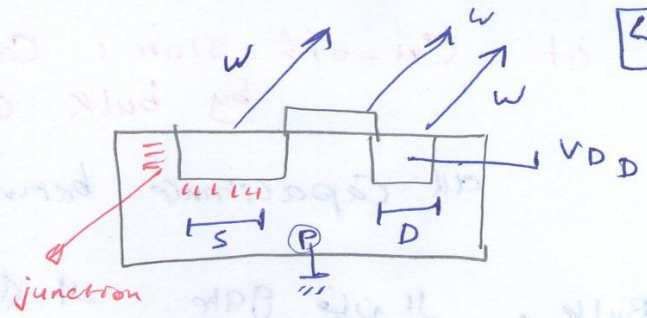 W
W
W
VDD
S
D
P
junction